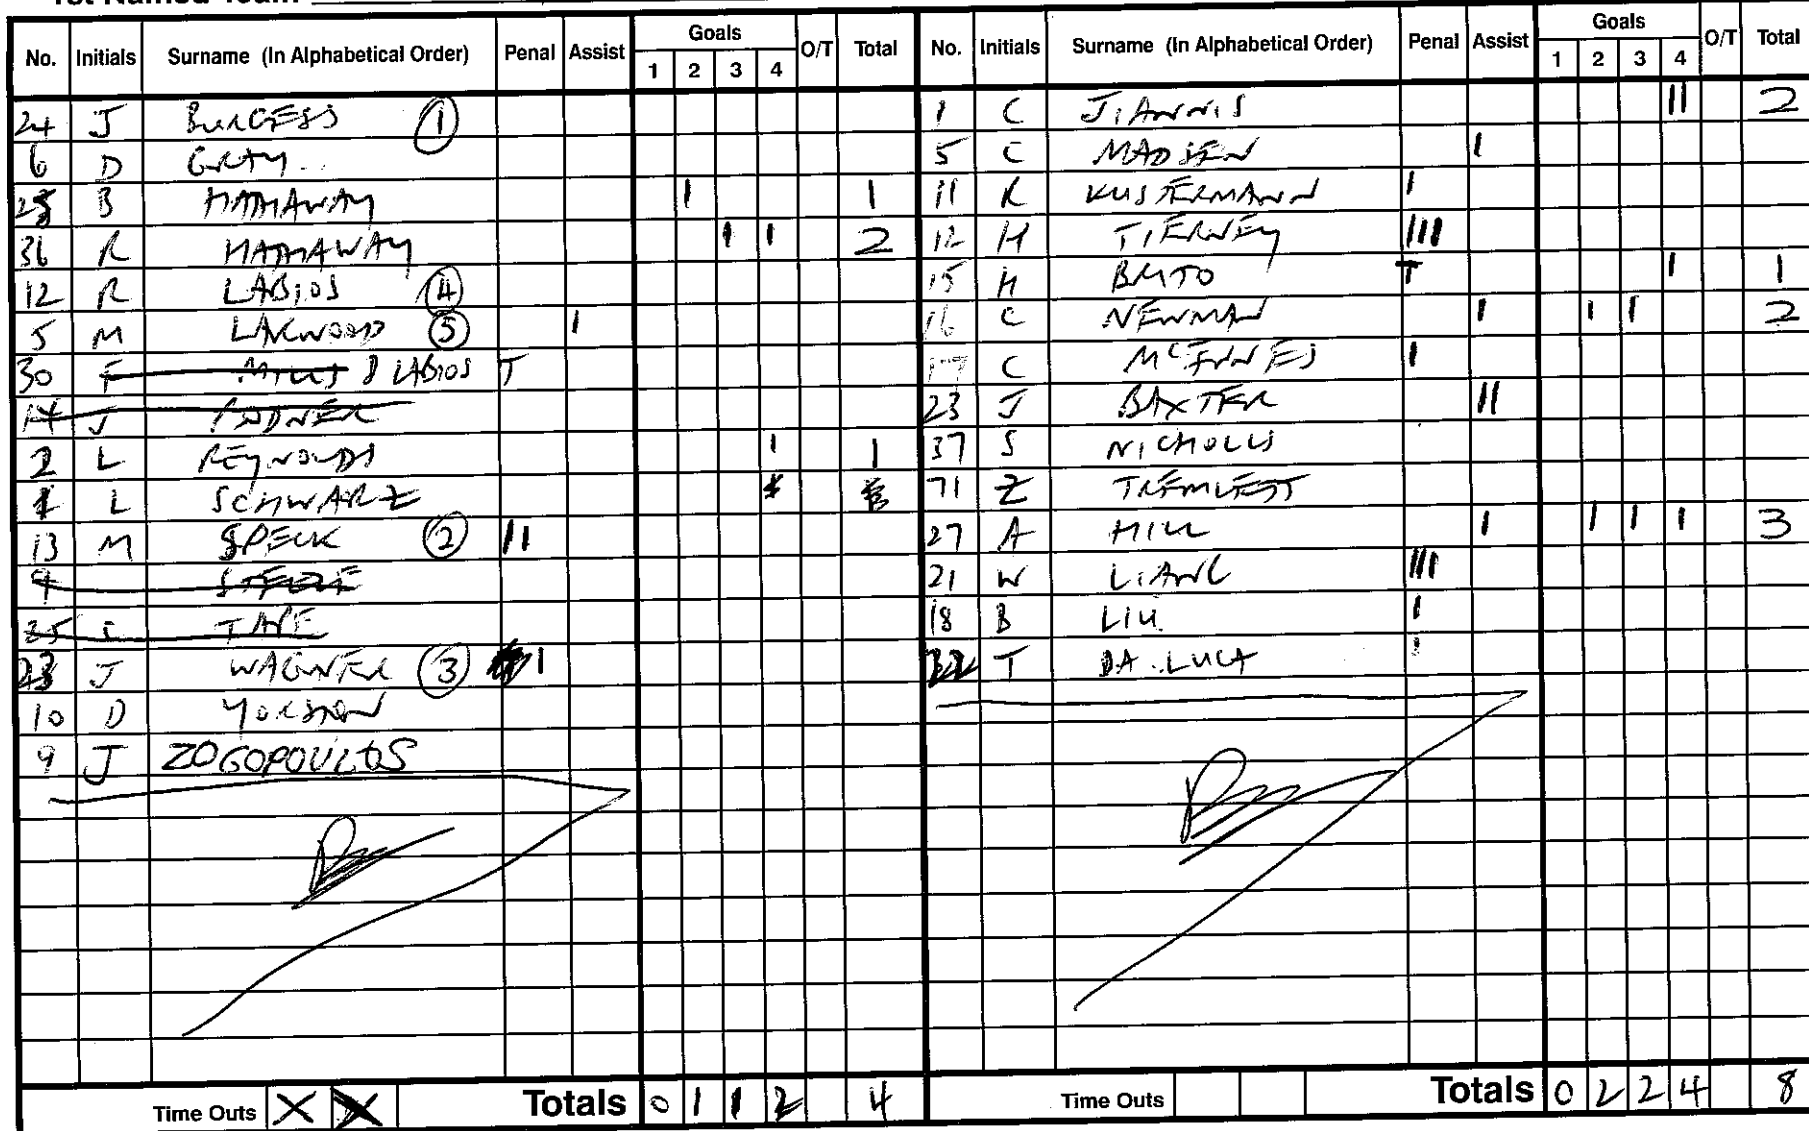 1st Named Team
No. Initials Surname (In Alphabetical Order) Penal Assist Goals 1 2 3 4 O/T Total
24 J BURGESS 1
6 D GRAY
B HATHAWAY 1 1
36 R HATHAWAY 1 1 2
12 R LABIOS 4
5 M LARWOOD 5 1
30 F MILLS J LABIOS T
14 J
2 L REYNOLDS 1 1
1 L SCHWARZ
13 M SPECK 2 11
9 STEELE
35 TAPE
23 J WAGNER 3 1
10 D YORSTON
9 J ZOGOPOULOS
Time Outs X X Totals 0 1 1 2 4
No. Initials Surname (In Alphabetical Order) Penal Assist Goals 1 2 3 4 O/T Total
1 C JIANNIS 11 2
5 C MADSEN 1
11 R KUSTERMANN 1
12 H TIERNEY 111
15 H BRITO T 1 1
16 C NEWMAN 1 1 1 2
17 C MCINNES 1
23 J BAXTER 11
37 S NICHOLLS
71 Z TREMLETT
27 A HILL 1 1 1 1 3
21 W LIANG 111
18 B LIU 1
T DA LUCA 1
Time Outs Totals 0 2 2 4 8